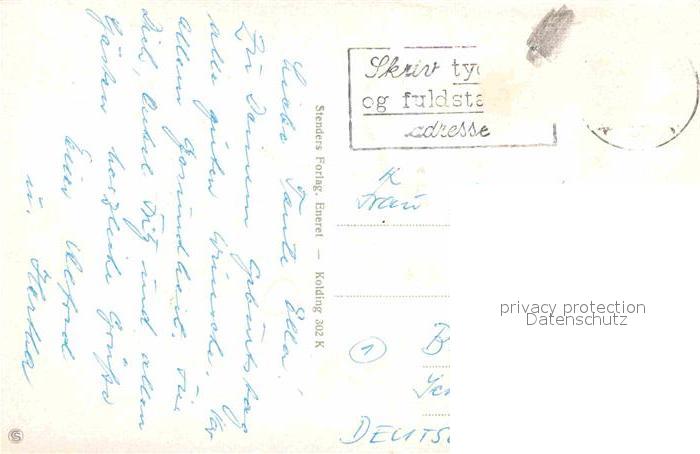 Liebe Tante Ella!
Zu Deinem Geburtstag
alle guten Wünsche, vor
allem Gesundheit. Für
Dich, Onkel Fritz und allen
Gästen herzliche Grüße
Euer Alfred
u. Hertha
Stenders Forlag. Eneret — Kolding 302 K
Skriv ty
og fuldsta
adresse
Frau
1
B
DEUTS
privacy protection
Datenschutz